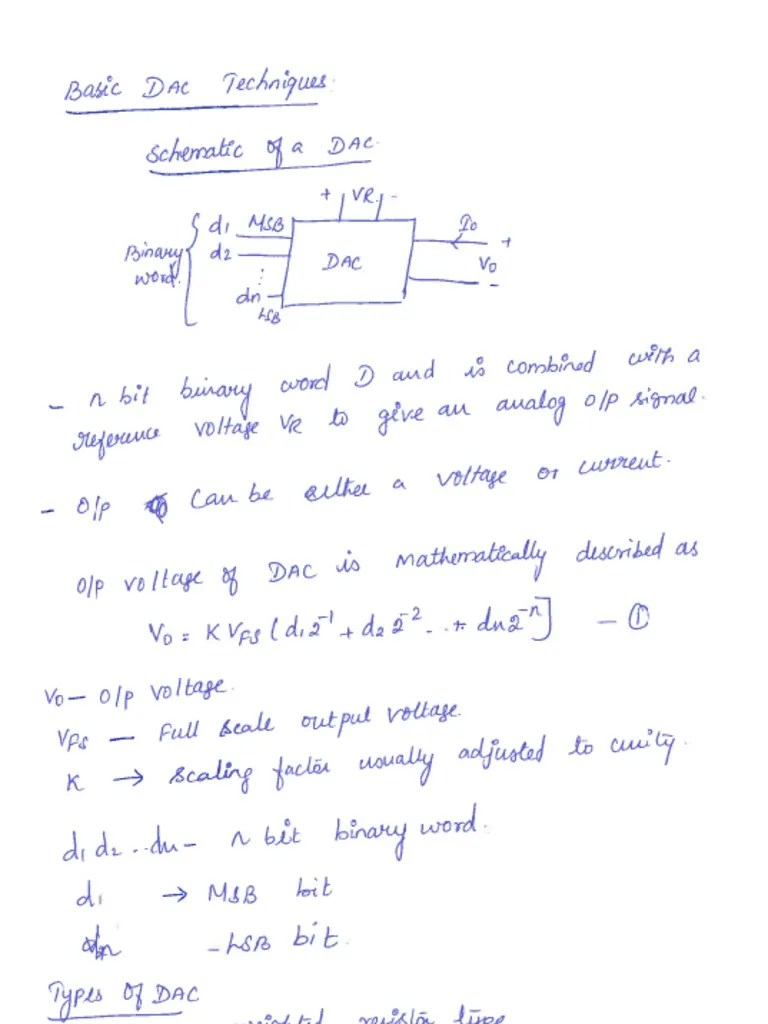 Basic DAC Techniques.
Schematic of a DAC.
+ VR -
Binary word.
d1 MSB
d2
⋮
dn
LSB
DAC
Io
+
Vo
-
- n bit binary word D and is combined with a
reference voltage VR to give an analog o/p signal.
- O/p can be either a voltage or current.
O/p voltage of DAC is mathematically described as
Vo = K VFS (d1 2^-1 + d2 2^-2 ... + dn 2^-n] - ①
Vo - O/p voltage.
VFS - Full scale output voltage.
K → scaling factor usually adjusted to unity.
d1 d2 .. dn - n bit binary word.
d1 → MSB bit
dn - LSB bit.
Types Of DAC
weighted resistor type